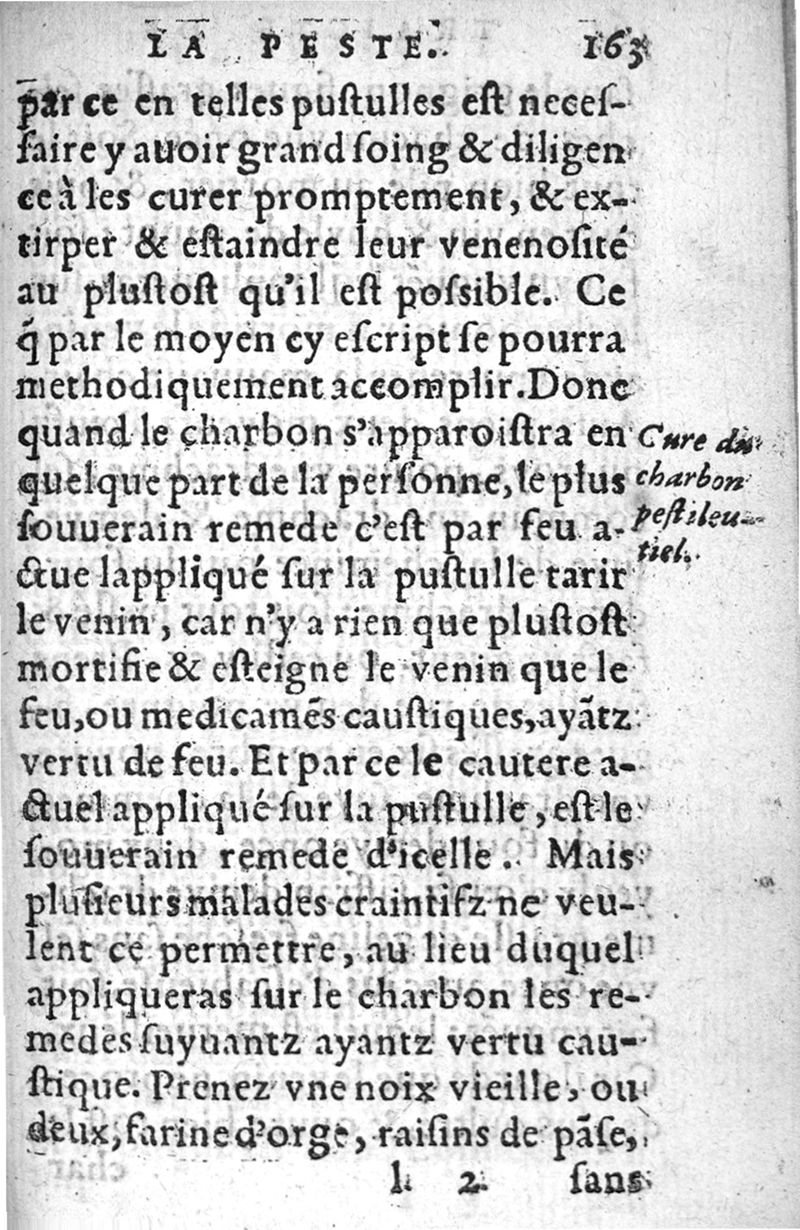 LA PESTE. 163
par ce en telles puſtulles eſt neceſ-
ſaire y auoir grand ſoing & diligen
ce à les curer promptement, & ex-
tirper & eſtaindre leur venenoſité
au pluſtoſt qu'il eſt poſsible. Ce
q̃ par le moyen cy eſcript ſe pourra
methodiquement accomplir. Donc
quand le charbon s'apparoiſtra en
quelque part de la perſonne, le plus
ſouuerain remede c'eſt par feu a-
ctue lappliqué ſur la puſtulle tarir
le venin, car n'y a rien que pluſtoſt
mortifie & eſteigne le venin que le
feu, ou medicamẽs cauſtiques, ayãtz
vertu de feu. Et par ce le cautere a-
ctuel appliqué ſur la puſtulle, eſt le
ſouuerain remede d'icelle. Mais
pluſieurs malades craintifz ne veu-
lent ce permettre, au lieu duquel
appliqueras ſur le charbon les re-
medes ſuyuantz ayantz vertu cau-
ſtique. Prenez vne noix vieille, ou
deux, farine d'orge, raiſins de pãſe,
l 2 ſans
Cure du
charbon
peſtileu-
tiel.